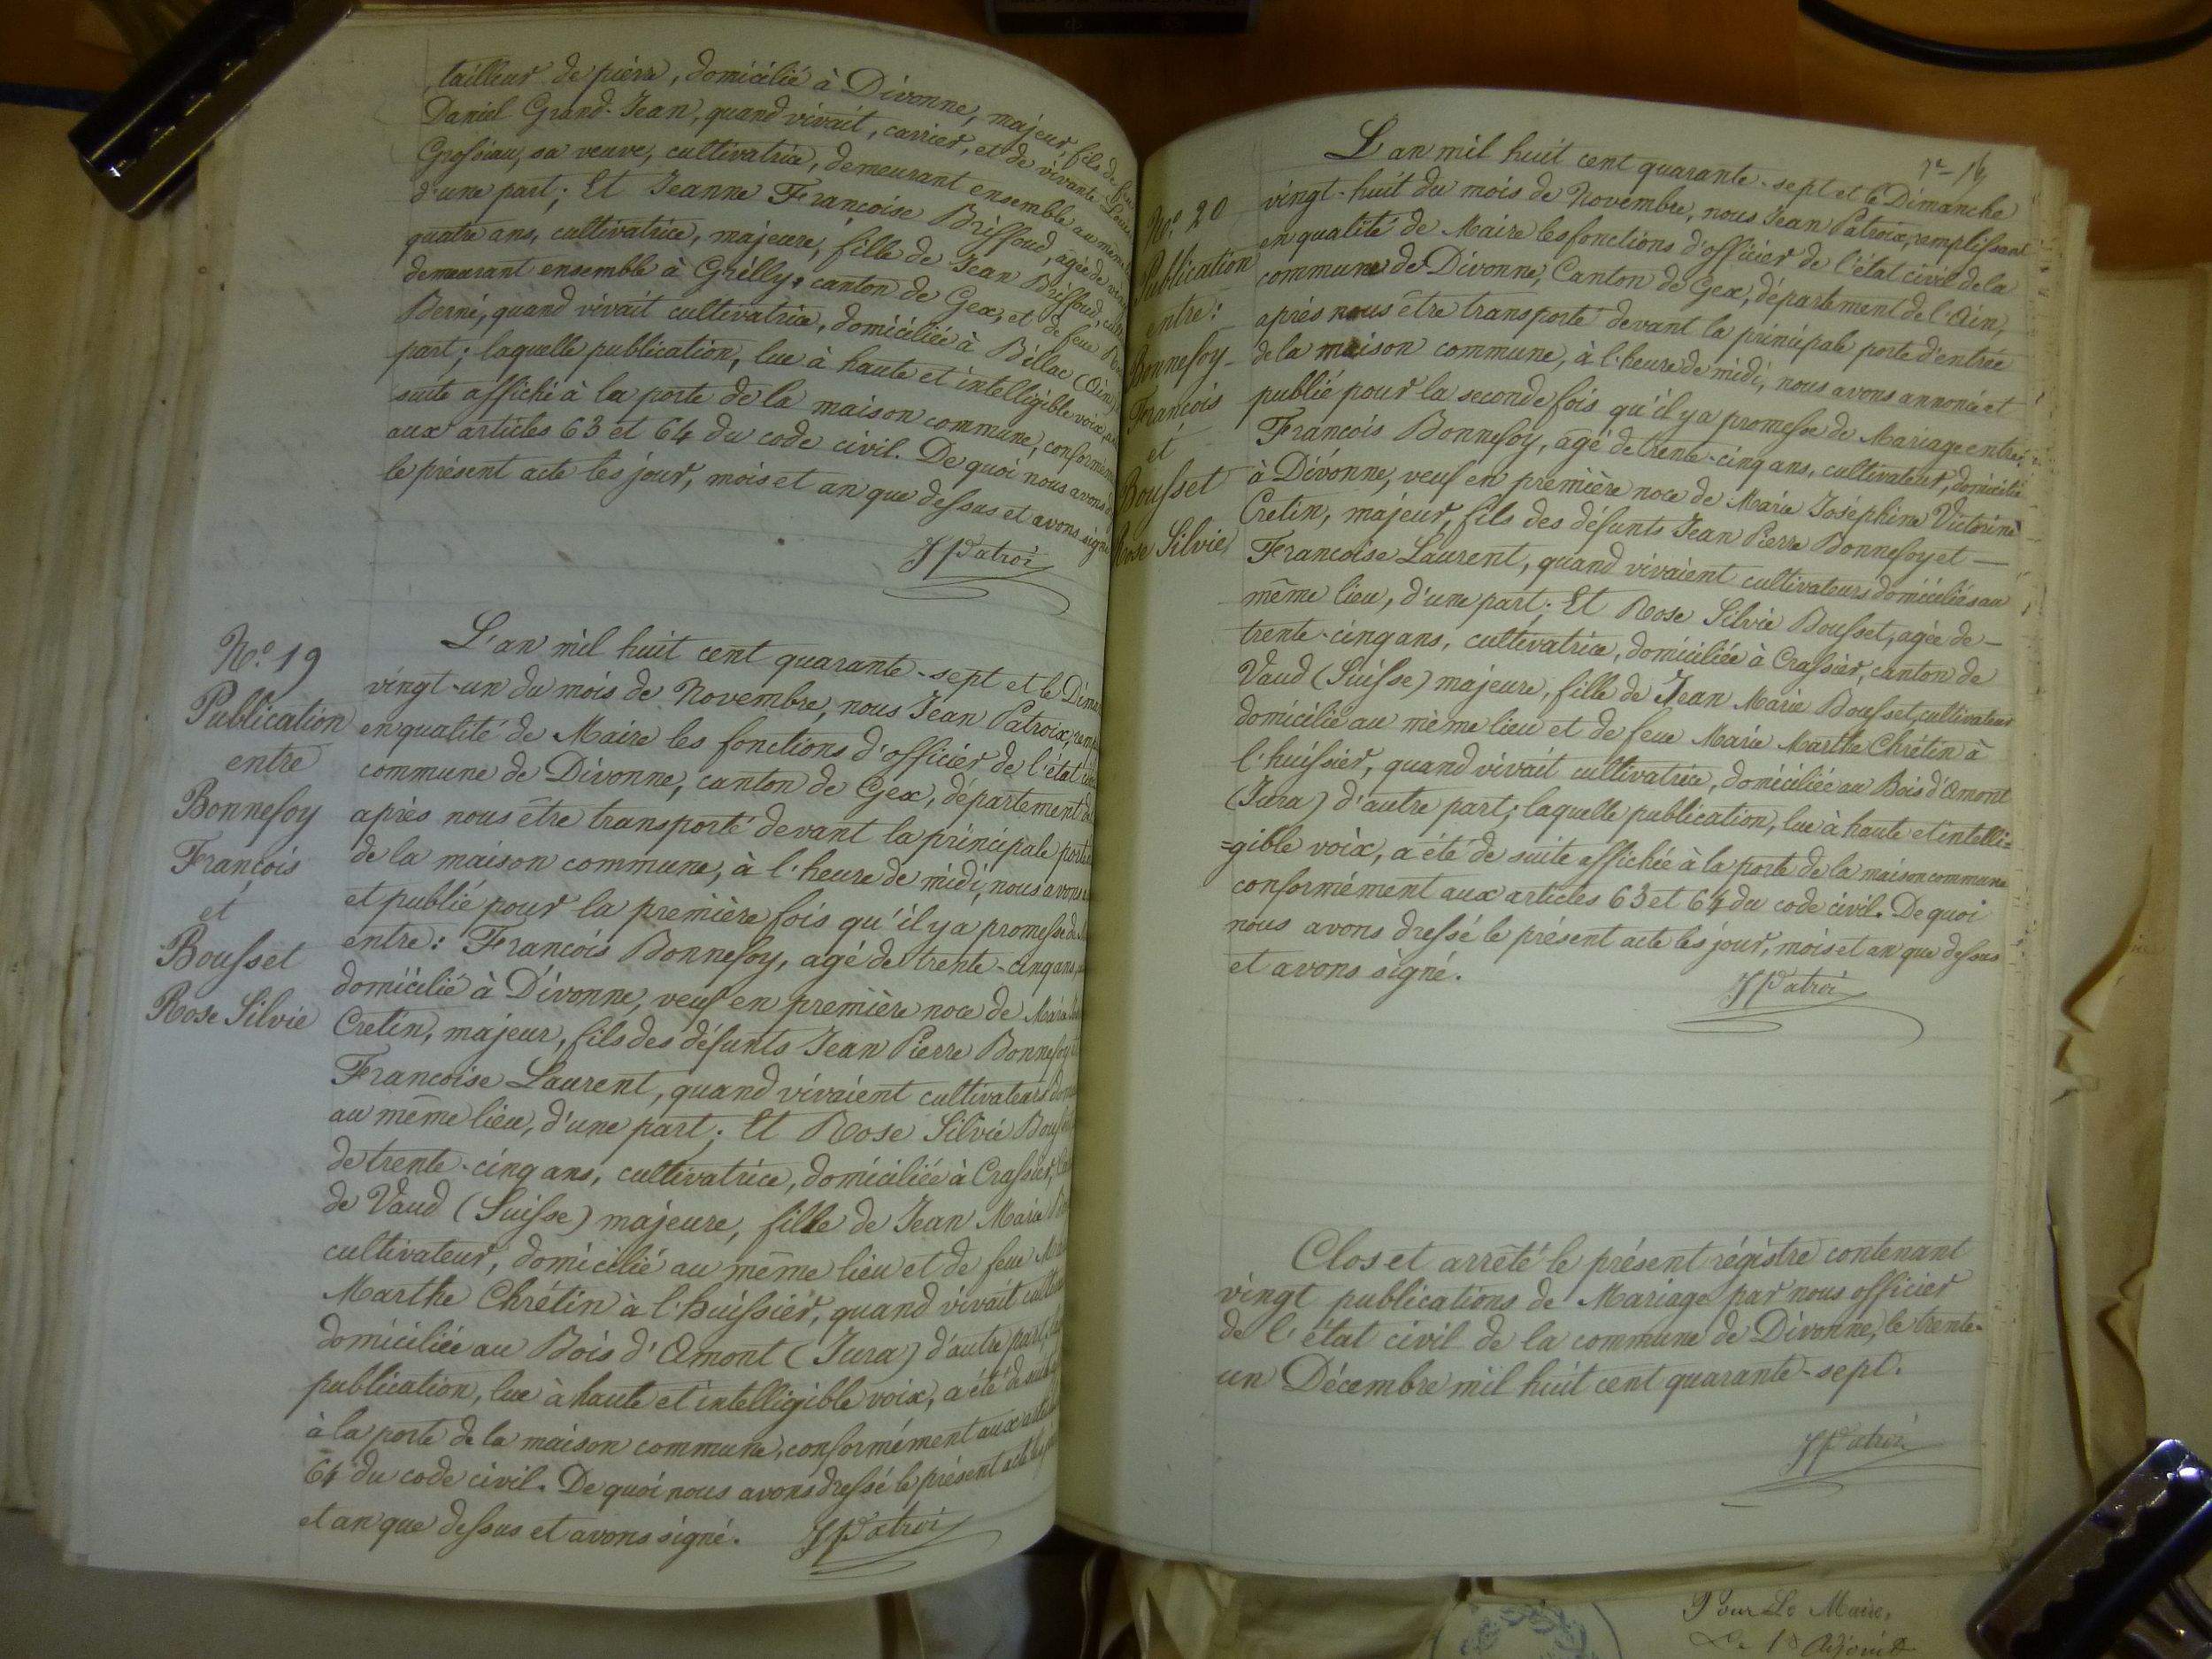 tailleur de pierre, domicilié à Divonne, majeur, fils de feu
Daniel Grand-Jean, quand vivait, carrier, et de vivante
Grosbiau, sa veuve, cultivatrice, demeurant ensemble au même
d'une part; Et Jeanne Françoise Briffoud, agée de vingt
quatre ans, cultivatrice, majeure, fille de Jean Briffoud,
demeurant ensemble à Grilly, canton de Gex, et de feue
Berné, quand vivait cultivatrice, domiciliée à Billac (Ain)
part; laquelle publication, lue à haute et intelligible voix,
suite affiché à la porte de la maison commune,
aux articles 63 et 64 du code civil. De quoi nous avons
le présent acte les jour, mois et an que dessus et avons signé
JPatroi
N.º 19
Publication
entre
Bonnefoy
François
et
Bousset
Rose Silvie
L'an mil huit cent quarante-sept et le
vingt-un du mois de Novembre, nous Jean Patroix,
en qualité de Maire les fonctions d'officier de l'état
commune de Divonne, canton de Gex, département
après nous être transporté devant la principale porte
de la maison commune, à l'heure de midi, nous avons
et publié pour la première fois qu'il y a promesse de
entre: François Bonnefoy, agé de trente-cinq ans,
domicilié à Divonne, veuf en première noce de Marie
Cretin, majeur, fils des défunts Jean Pierre Bonnefoy
Francoise Laurent, quand vivaient cultivateurs
au même lieu, d'une part; Et Rose Silvie
de trente-cinq ans, cultivatrice, domiciliée à Crassier,
de Vaud (Suisse) majeure, fille de Jean Marie
cultivateur, domicilié au même lieu et de feue
Marthe Chrétin à l'huissier, quand vivait
domiciliée au Bois d'Amont (Jura) d'autre part,
publication, lue à haute et intelligible voix, a été de
à la porte de la maison commune, conformément aux
64 du code civil. De quoi nous avons dressé le présent acte
et an que dessus et avons signé. JPatroi
N.º 20
Publication
entre:
Bonnefoy
François
et
Bousset
Rose Silvie
L'an mil huit cent quarante-sept et le Dimanche
vingt-huit du mois de Novembre, nous Jean Patroix, remplissant
en qualité de Maire les fonctions d'officier de l'état civil de la
commune de Divonne, Canton de Gex, département de l'Ain,
après nous être transporté devant la principale porte d'entrée
de la maison commune, à l'heure de midi, nous avons annoncé et
publié pour la seconde fois qu'il y a promesse de Mariage entre:
François Bonnefoy, agé de trente-cinq ans, cultivateur, domicilié
à Divonne, veuf en première noce de Marie Joséphine Victorine
Cretin, majeur, fils des défunts Jean Pierre Bonnefoy et —
Francoise Laurent, quand vivaient cultivateurs domiciliés au
même lieu, d'une part; Et Rose Silvie Bousset, agée de —
trente-cinq ans, cultivatrice, domiciliée à Crassier, canton de
Vaud (Suisse) majeure, fille de Jean Marie Bousset, cultivateur
domicilié au même lieu et de feue Marie Marthe Chrétin à
l'huissier, quand vivait cultivatrice, domiciliée au Bois d'Amont
(Jura) d'autre part; laquelle publication, lue à haute et intelli=
=gible voix, a été de suite affichée à la porte de la maison commune
conformément aux articles 63 et 64 du code civil. De quoi
nous avons dressé le présent acte les jour, mois et an que dessus
et avons signé.
JPatroi
Clos et arrêté le présent régistre contenant
vingt publications de Mariage par nous officier
de l'état civil de la commune de Divonne, le trente-
un Décembre mil huit cent quarante-sept.
JPatroi
Pour Le Maire,
Adjoint